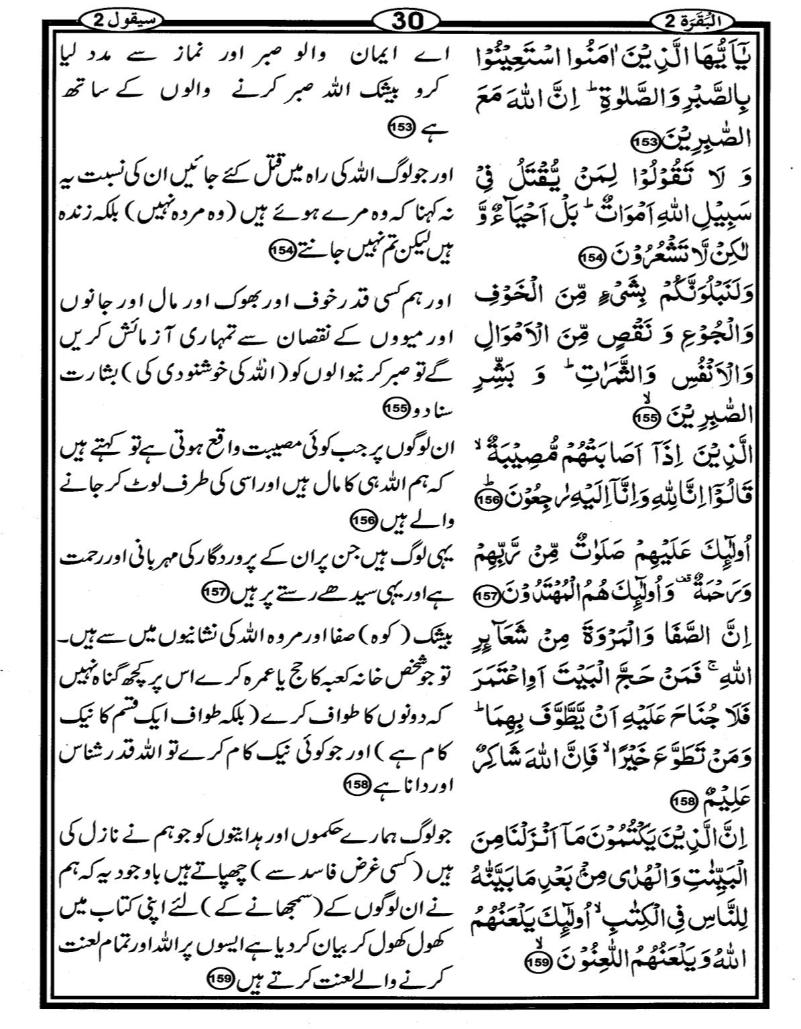 البقرة 2
30
سيقول 2
يٰۤاَيُّهَا الَّذِيْنَ اٰمَنُوا اسْتَعِيْنُوْا
بِالصَّبْرِ وَالصَّلٰوةِ ؕ اِنَّ اللّٰهَ مَعَ
الصّٰبِرِيْنَ 153
وَ لَا تَقُوْلُوْا لِمَنْ يُّقْتَلُ فِيْ
سَبِيْلِ اللّٰهِ اَمْوَاتٌ ؕ بَلْ اَحْيَآءٌ وَّ
لٰكِنْ لَّا تَشْعُرُوْنَ 154
وَلَنَبْلُوَنَّكُمْ بِشَيْءٍ مِّنَ الْخَوْفِ
وَالْجُوْعِ وَ نَقْصٍ مِّنَ الْاَمْوَالِ
وَالْاَنْفُسِ وَالثَّمَرٰتِ ؕ وَ بَشِّرِ
الصّٰبِرِيْنَ ۙ 155
الَّذِيْنَ اِذَاۤ اَصَابَتْهُمْ مُّصِيْبَةٌ ۙ
قَالُوْۤا اِنَّا لِلّٰهِ وَاِنَّاۤ اِلَيْهِ رٰجِعُوْنَ ؕ 156
اُولٰٓئِكَ عَلَيْهِمْ صَلَوٰتٌ مِّنْ رَّبِّهِمْ
وَرَحْمَةٌ ۟ وَاُولٰٓئِكَ هُمُ الْمُهْتَدُوْنَ 157
اِنَّ الصَّفَا وَالْمَرْوَةَ مِنْ شَعَآئِرِ
اللّٰهِ ۚ فَمَنْ حَجَّ الْبَيْتَ اَوِ اعْتَمَرَ
فَلَا جُنَاحَ عَلَيْهِ اَنْ يَّطَّوَّفَ بِهِمَا ؕ
وَمَنْ تَطَوَّعَ خَيْرًا ۙ فَاِنَّ اللّٰهَ شَاكِرٌ
عَلِيْمٌ 158
اِنَّ الَّذِيْنَ يَكْتُمُوْنَ مَاۤ اَنْزَلْنَا مِنَ
الْبَيِّنٰتِ وَالْهُدٰى مِنْۢ بَعْدِ مَا بَيَّنّٰهُ
لِلنَّاسِ فِي الْكِتٰبِ ۙ اُولٰٓئِكَ يَلْعَنُهُمُ
اللّٰهُ وَيَلْعَنُهُمُ اللّٰعِنُوْنَ ۙ 159
اے ایمان والو صبر اور نماز سے مدد لیا
کرو بیشک اللہ صبر کرنے والوں کے ساتھ
ہے 153
اور جو لوگ اللہ کی راہ میں قتل کئے جائیں ان کی نسبت یہ
نہ کہنا کہ وہ مرے ہوئے ہیں (وہ مردہ نہیں) بلکہ زندہ
ہیں لیکن تم نہیں جانتے 154
اور ہم کسی قدر خوف اور بھوک اور مال اور جانوں
اور میووں کے نقصان سے تمہاری آزمائش کریں
گے تو صبر کرنیوالوں کو (اللہ کی خوشنودی کی) بشارت
سنا دو 155
ان لوگوں پر جب کوئی مصیبت واقع ہوتی ہے تو کہتے ہیں
کہ ہم اللہ ہی کا مال ہیں اور اسی کی طرف لوٹ کر جانے
والے ہیں 156
یہی لوگ ہیں جن پر ان کے پروردگار کی مہربانی اور رحمت
ہے اور یہی سیدھے رستے پر ہیں 157
بیشک (کوہ) صفا اور مروہ اللہ کی نشانیوں میں سے ہیں۔
تو جو شخص خانہ کعبہ کا حج یا عمرہ کرے اس پر کچھ گناہ نہیں
کہ دونوں کا طواف کرے (بلکہ طواف ایک قسم کا نیک
کام ہے) اور جو کوئی نیک کام کرے تو اللہ قدر شناس
اور دانا ہے 158
جو لوگ ہمارے حکموں اور ہدایتوں کو جو ہم نے نازل کی
ہیں (کسی غرض فاسد سے) چھپاتے ہیں باوجودیہ کہ ہم
نے ان لوگوں کے (سمجھانے کے) لئے اپنی کتاب میں
کھول کھول کر بیان کر دیا ہے ایسوں پر اللہ اور تمام لعنت
کرنے والے لعنت کرتے ہیں 159